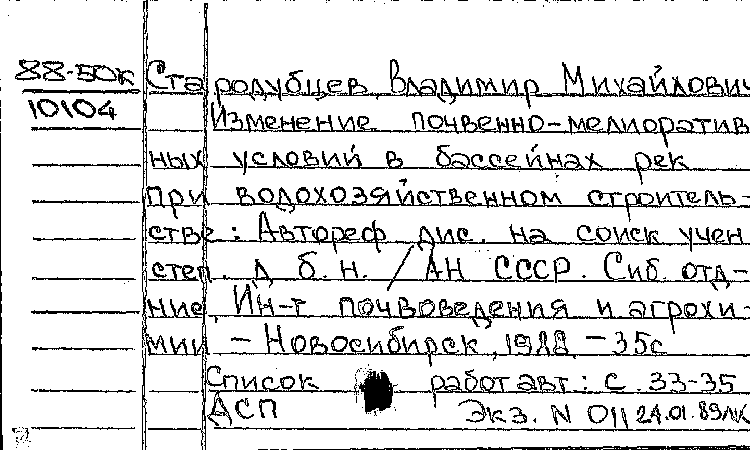 88-50к Стародубцев Владимир Михайлович
10104 Изменение почвенно-мелиоратив
ных условий в бассейнах рек
при водохозяйственном строитель-
стве: Автореф дис. на соиск учен
степ. д б. н. / АН СССР. Сиб. отд-
ние, Ин-т почвоведения и агрохи-
мии - Новосибирск, 1988 - 35с
Список работ авт: с. 33-35
ДСП Экз. N 011 24.01.89лк